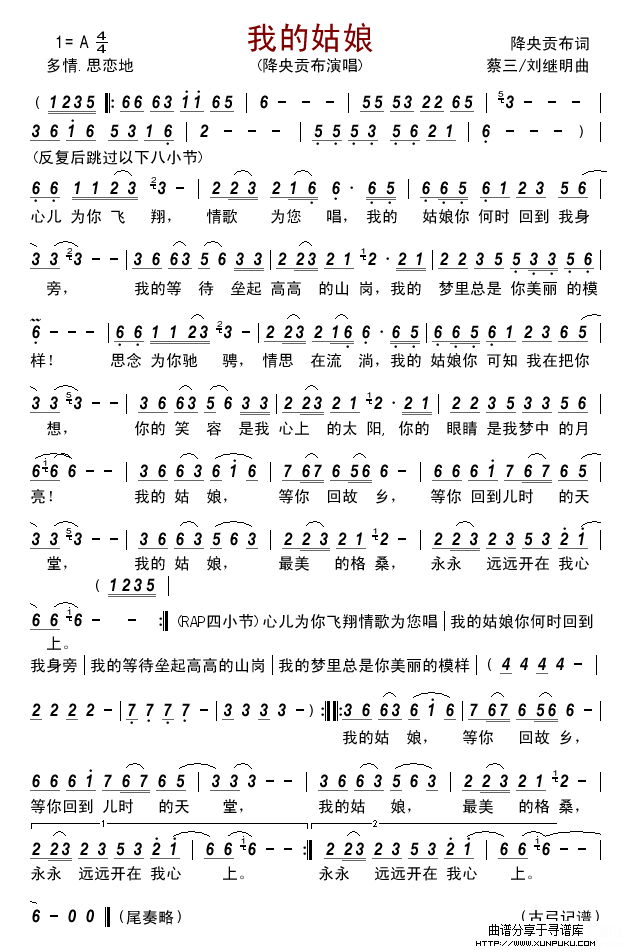 我的姑娘
1= A 4/4
降央贡布词
多情.思恋地
(降央贡布演唱)
蔡三/刘继明曲
( 1235 |: 66 63 i i 65 | 6 - - - | 55 53 22 65 | 5 3 - - - |
3 6 i 6 5 3 1 6 | 2 - - - | 5 5 5 3 5 6 2 1 | 6 - - - )
(反复后跳过以下八小节)
6 6 1 1 2 3 2 3 - | 2 2 3 2 1 6 6 · 6 5 | 6 6 5 6 1 2 3 5 6 |
心儿 为你 飞 翔， 情歌 为您 唱，我的 姑娘你 何时 回到 我身
3 3 2 3 - - | 3 6 6 3 5 6 3 3 | 2 2 3 2 1 1 2 · 2 1 | 2 2 3 5 5 3 3 5 6 |
旁， 我的等 待 垒起 高高 的山 岗，我的 梦里总是 你美丽 的模
6 - - - | 6 6 1 1 2 3 5 3 - | 2 2 3 2 1 6 6 · 6 5 | 6 6 5 6 1 2 3 6 5 |
样！ 思念 为你驰 骋，情思 在流 淌，我的 姑娘你 可知 我在把你
3 3 5 3 - - | 3 6 6 3 5 6 3 3 | 2 2 3 2 1 1 2 · 2 1 | 2 2 3 5 3 3 5 6 |
想， 你的 笑 容 是我 心上 的太 阳，你的 眼睛 是我梦中 的月
6 i 6 6 - - | 3 6 6 3 6 i 6 | 7 6 7 6 5 6 6 - | 6 6 6 i 7 6 7 6 5 |
亮！ 我的 姑 娘， 等你 回故 乡， 等你 回到儿时 的天
3 3 5 3 - - | 3 6 6 3 5 6 3 | 2 2 3 2 1 1 2 - | 2 2 3 2 3 5 3 2 i |
堂， 我的 姑 娘， 最美 的格 桑， 永永 远远开在 我心
( 1235 |
6 6 i 6 - - :| (RAP四小节)心儿为你飞翔情歌为您唱|我的姑娘你何时回到
上。
我身旁|我的等待垒起高高的山岗|我的梦里总是你美丽的模样|( 4 4 4 - |
2 2 2 2 - | 7 7 7 7 - | 3 3 3 3 - ) :||: 3 6 6 3 6 i 6 | 7 6 7 6 5 6 6 - |
我的姑 娘， 等你 回故 乡，
6 6 6 i 7 6 7 6 5 | 3 3 3 - - | 3 6 6 3 5 6 3 | 2 2 3 2 1 1 2 - |
等你回到 儿时 的天 堂， 我的姑 娘， 最美 的格 桑，
1 2
2 2 3 2 3 5 3 2 i | 6 6 i 6 - - :| 2 2 3 2 3 5 3 2 i | 6 6 i 6 - - |
永永 远远开在 我心 上。 永永 远远开在 我心 上。
6 - 0 0 ‖ (尾奏略) (古弓记谱)
曲谱分享于寻谱库
www.XUNPUKU.com